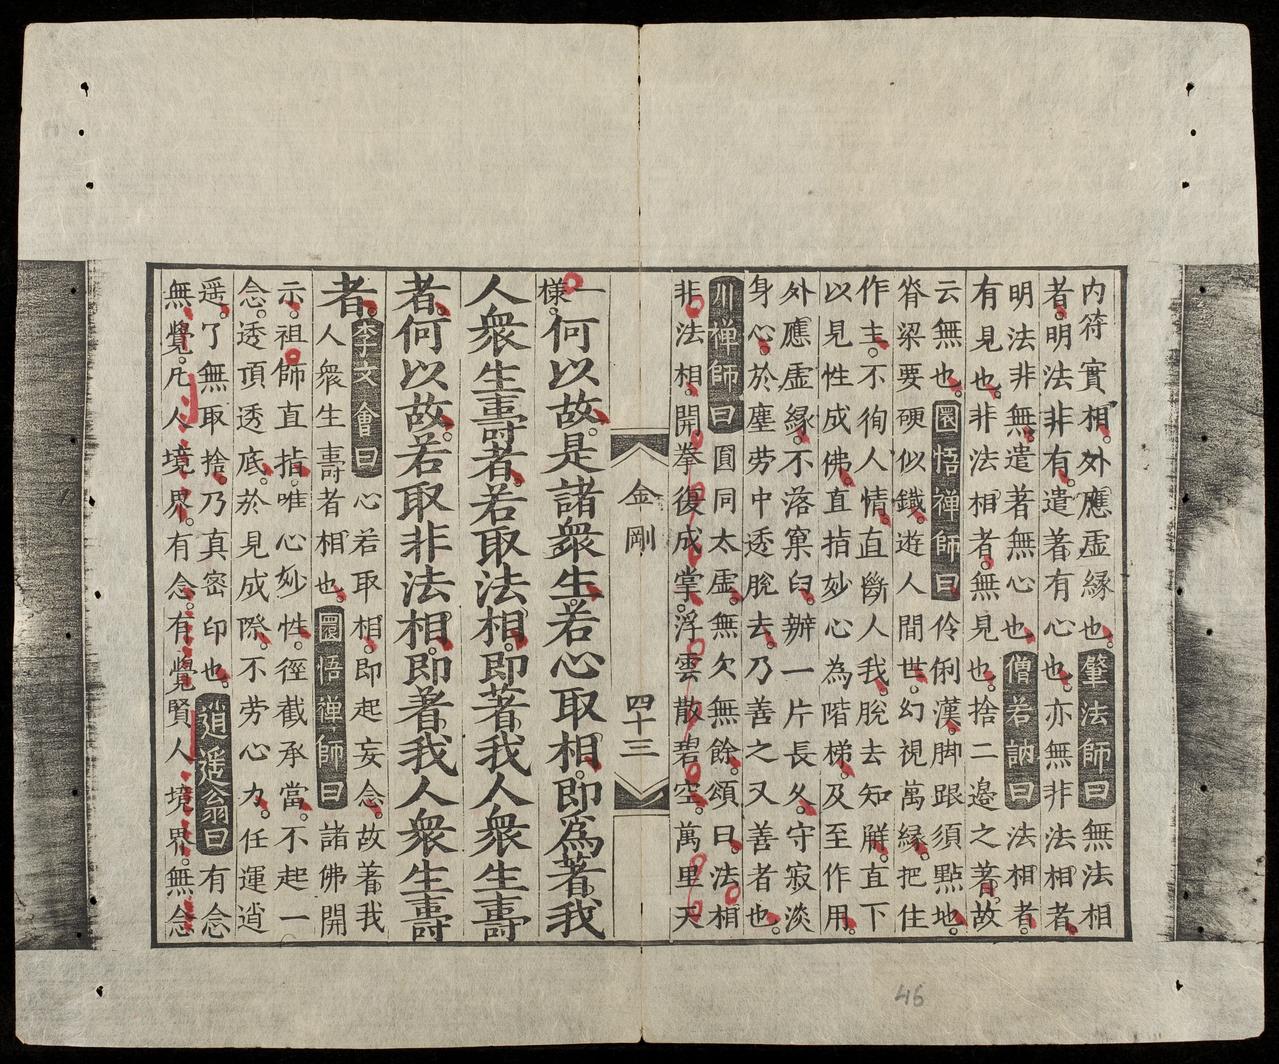 内符實相。外應虛緣也。肇法師曰無法相
者。明法非有。遣著有心也。亦無非法相者。
明法非無。遣著無心也。僧若訥曰法相者。
有見也。非法相者。無見也。捨二邊之著。故
云無也。圜悟禪師曰伶俐漢。脚跟須點地。
脊梁要硬似鐵。遊人間世。幻視萬緣。把住
作主。不徇人情。直斷人我。脫去知解。直下
以見性成佛。直指妙心為階梯。及至作用。
外應虛緣。不落窠臼。辦一片長久。守寂淡
身心。於塵勞中透脫去。乃善之又善者也。
川禪師曰圓同太虛。無欠無餘。頌曰。法相
非法相。開拳復成掌。浮雲散碧空。萬里天
金剛
四十三
一
樣。何以故。是諸衆生。若心取相。即為著我
人衆生壽者。若取法相。即著我人衆生壽
者。何以故。若取非法相。即著我人衆生壽
者。李文會曰心若取相。即起妄念。故著我
人衆生壽者相也。圜悟禪師曰諸佛開
示。祖師直指。唯心妙性。徑截承當。不起一
念。透頂透底。於見成際。不劳心力。任運逍
遥。了無取捨。乃真密印也。逍遥翁曰有念
無覺。凡人境界。有念。有覺賢人境界。無念
46